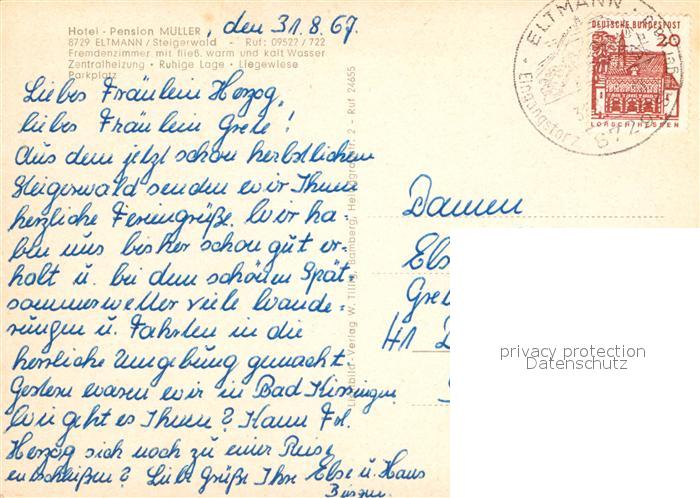 Hotel - Pension MÜLLER
8729 ELTMANN / Steigerwald - Ruf: 09522 / 722
Fremdenzimmer mit fließ. warm und kalt Wasser
Zentralheizung · Ruhige Lage · Liegewiese
Parkplatz
, den 31.8.67.
Liebes Fräulein Herzog,
liebes Fräulein Grete!
Aus dem jetzt schon herbstlichen
Steigerwald senden wir Ihnen
herzliche Feriengrüße. Wir ha-
ben uns bisher schon gut er-
holt u. bei dem schönen Spät-
sommerwetter viele Wande-
rungen u. Fahrten in die
herrliche Umgebung gemacht.
Gestern waren wir in Bad Kissingen
Wie geht es Ihnen? Kann Frl.
Herzog sich noch zu einer Reise
entschließen? Liebe Grüße Ihre Else u. Hans
Luftbild-Verlag W. Tillig, Bamberg, 2 - Ruf 24655
ELTMANN
8729
DEUTSCHE BUNDESPOST
20
LORSCH/HESSEN
Damen
Els
Gre
privacy protection
Datenschutz